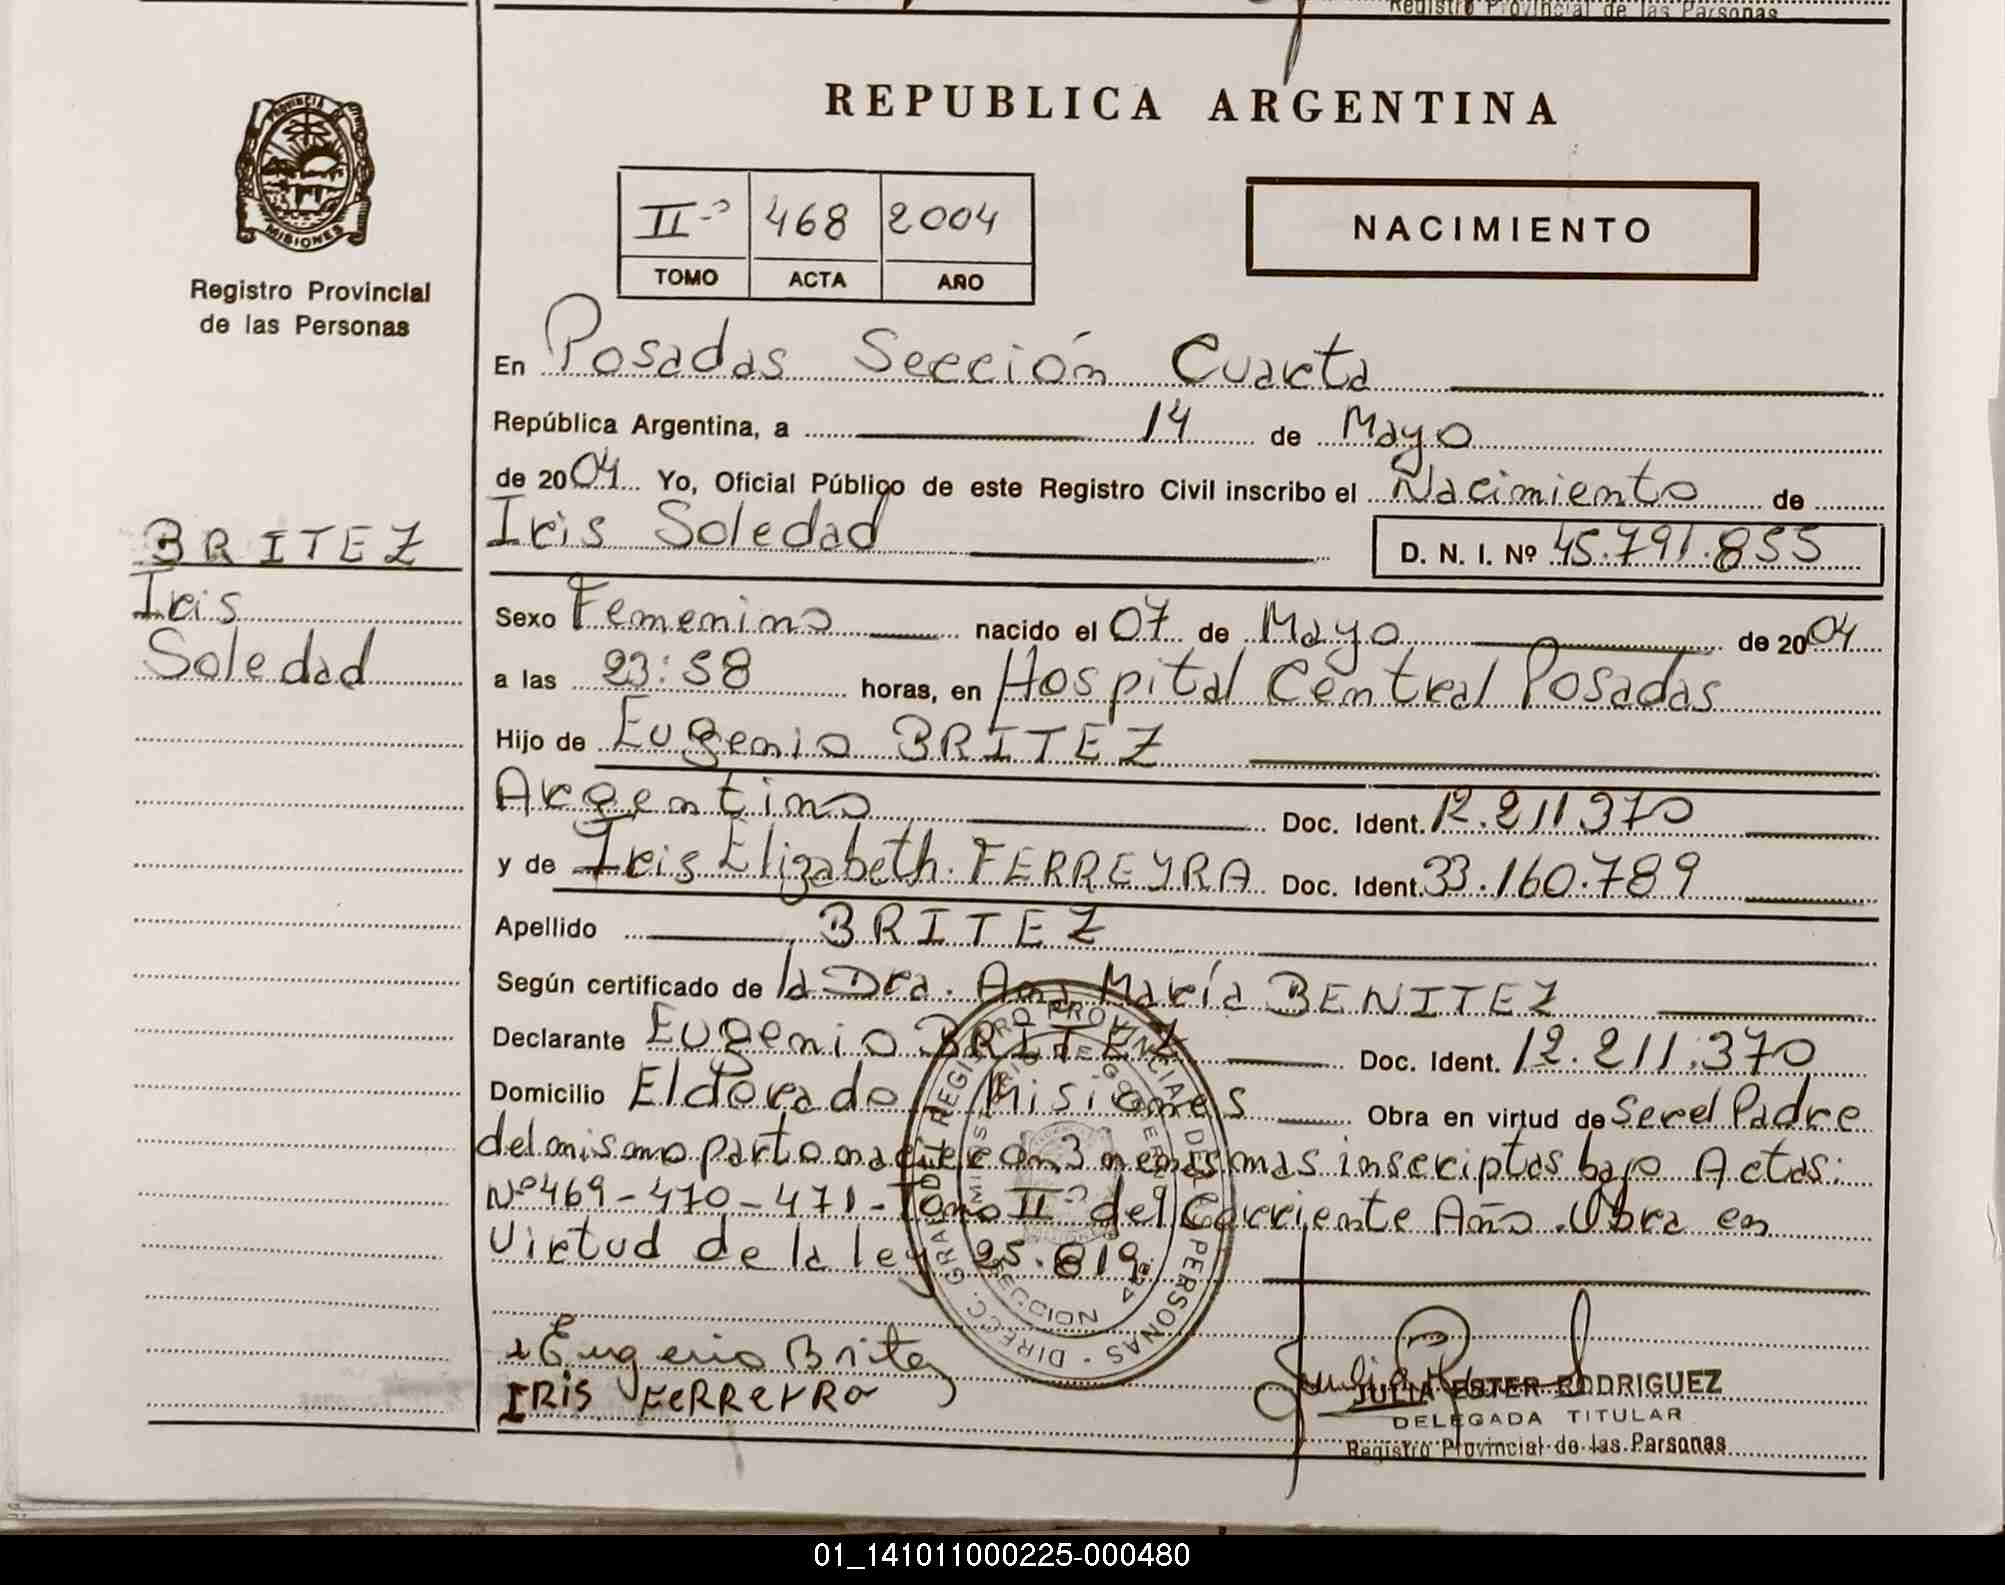 Registro Provincial de las Personas
REPUBLICA ARGENTINA
PROVINCIA
MISIONES
Registro Provincial
de las Personas
II-º 468 2004
TOMO ACTA AÑO
NACIMIENTO
En Posadas Sección Cuarta
República Argentina, a 14 de Mayo
de 2004 Yo, Oficial Público de este Registro Civil inscribo el Nacimiento de
Iris Soledad D. N. I. Nº 45.791.855
BRITEZ
Iris
Soledad
Sexo Femenino nacido el 07 de Mayo de 2004
a las 23:58 horas, en Hospital Central Posadas
Hijo de Eugenio BRITEZ
Argentino Doc. Ident. 12.211.370
y de Iris Elizabeth FERREYRA Doc. Ident. 33.160.789
Apellido BRITEZ
Según certificado de la Dra. Ana María BENITEZ
Declarante Eugenio BRITEZ Doc. Ident. 12.211.370
Domicilio Eldorado Misiones Obra en virtud de Ser el Padre
del mismo parto nacieron 3 nenas mas inscriptas bajo Actas:
Nº 469-470-471-Tomo IIº del Corriente Año. Obra en
Virtud de la ley 25.819.
DIRECC. GRAL. DEL REGISTRO PROVINCIAL DE LAS PERSONAS
MINISTERIO DE GOBIERNO
Eugenio Britez
IRIS FERREYRA
JULIA ESTER RODRIGUEZ
DELEGADA TITULAR
Registro Provincial de las Personas
01_141011000225-000480